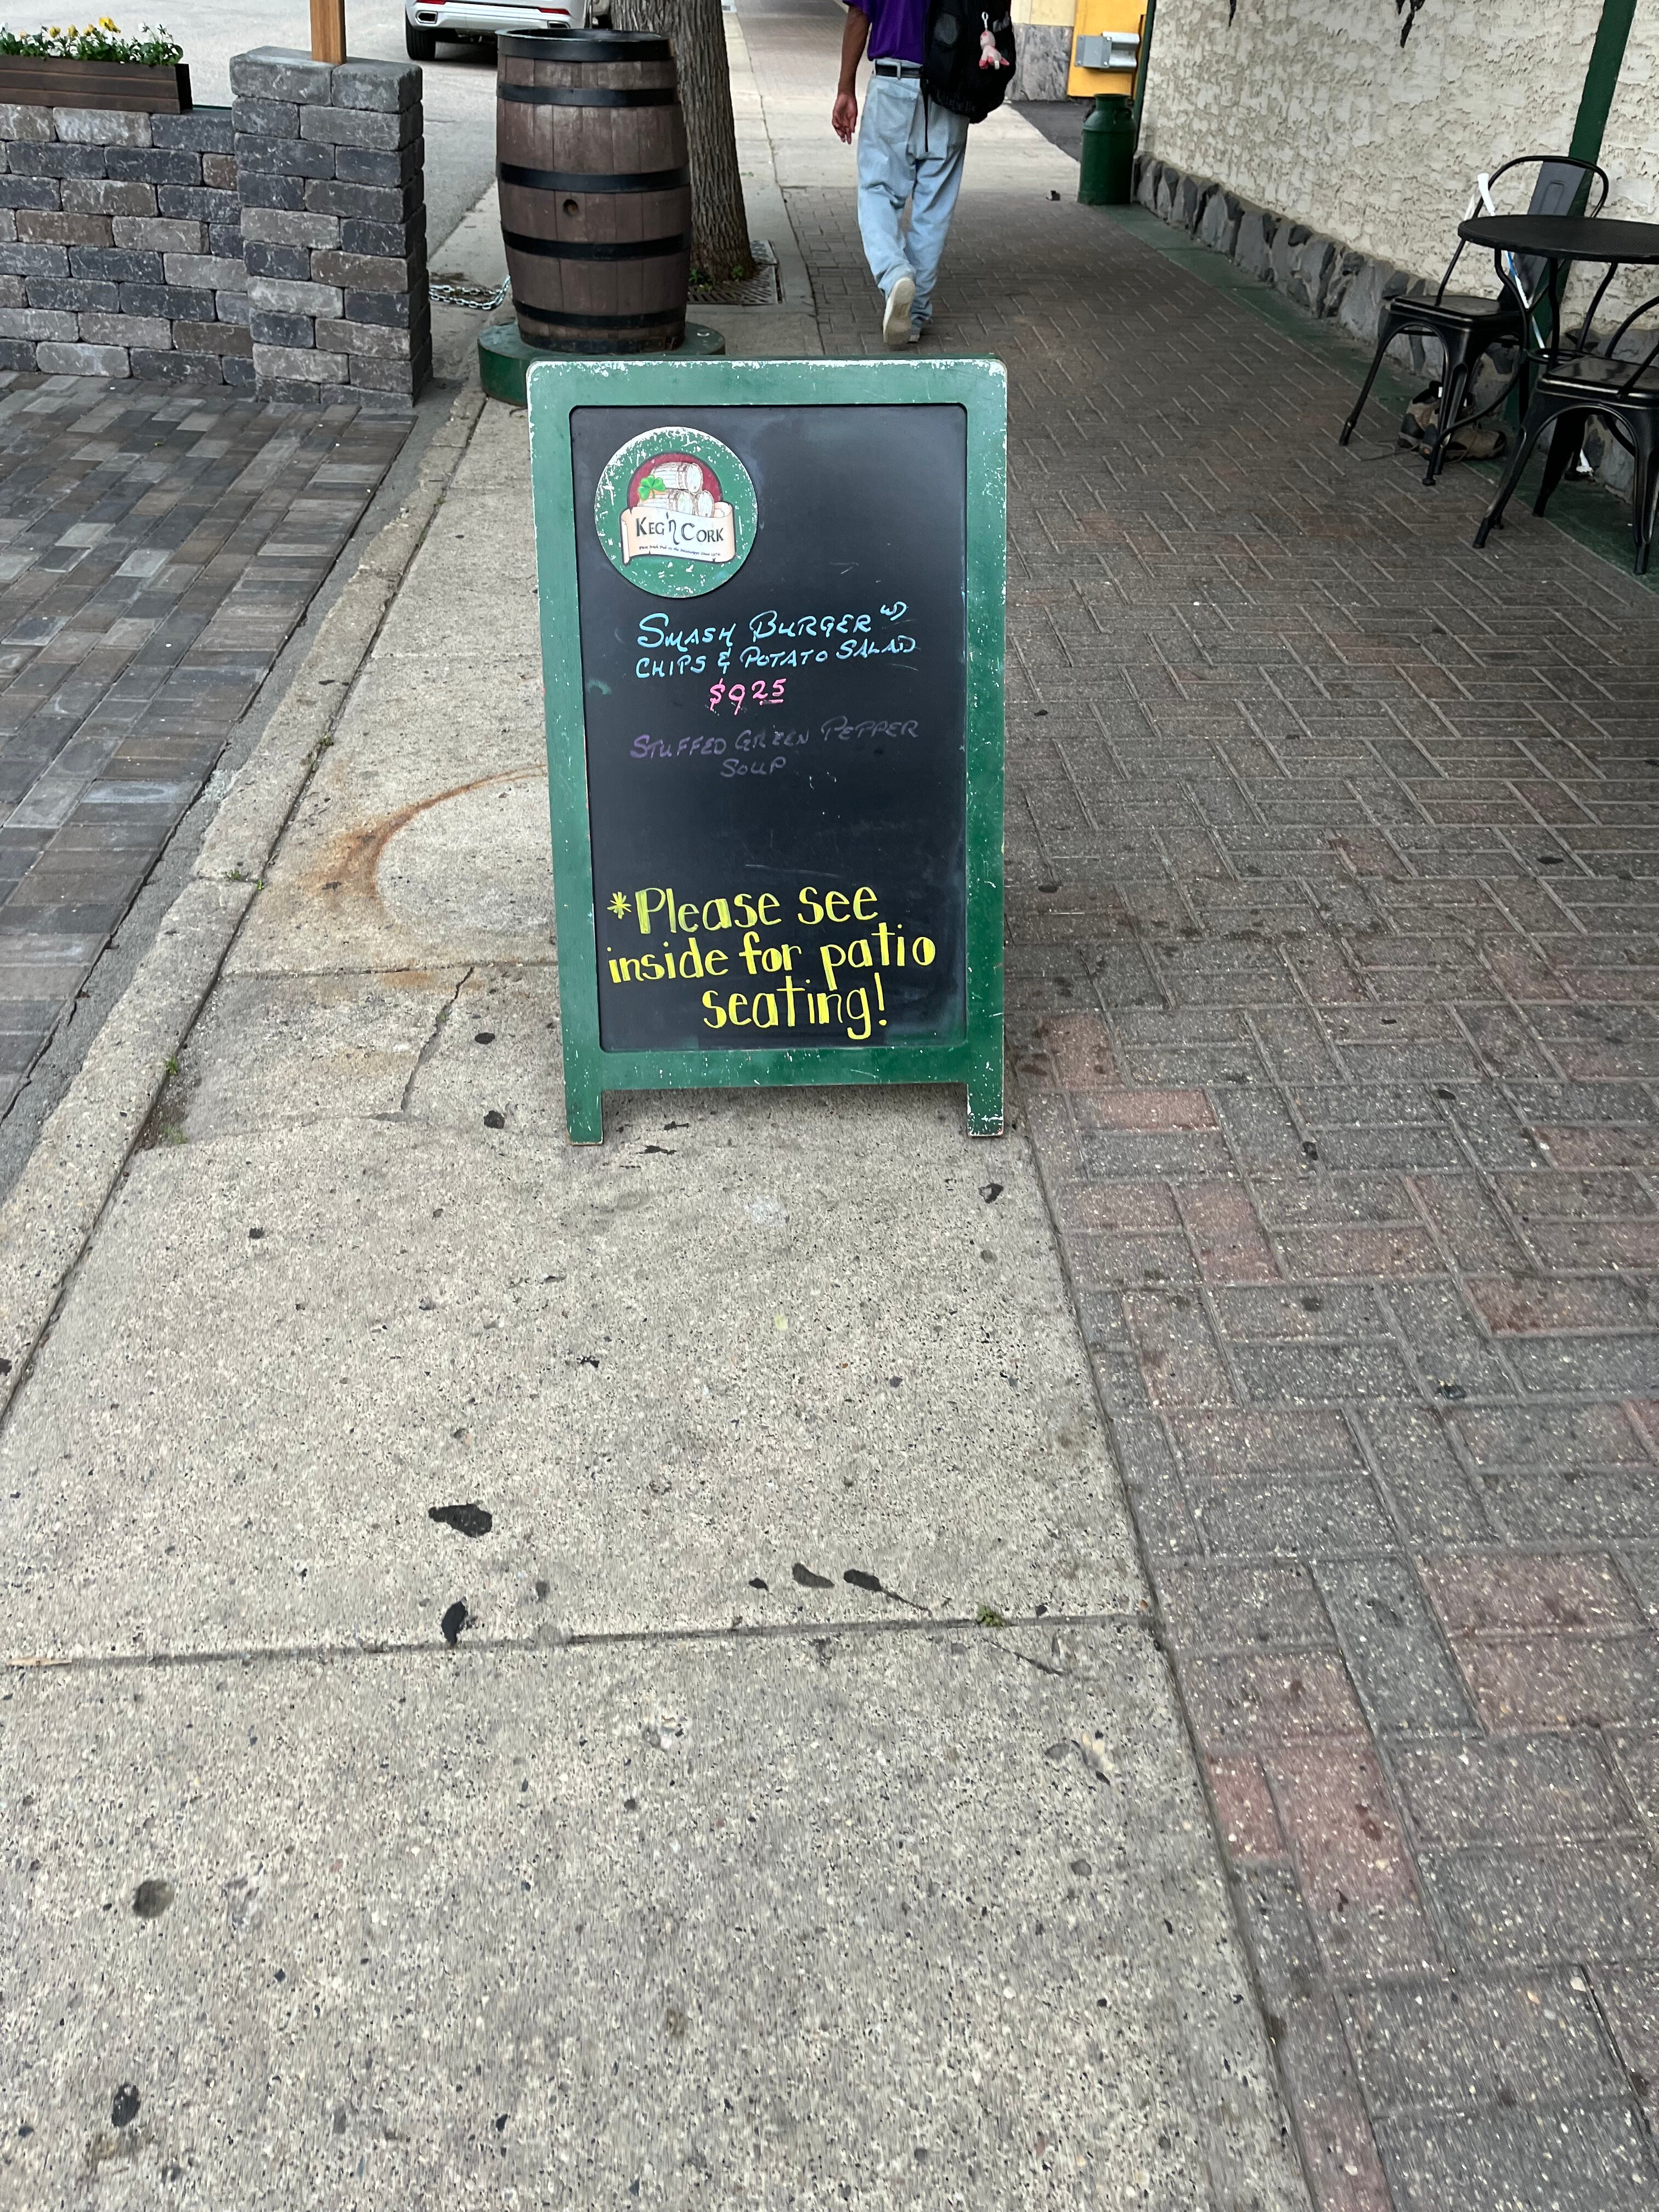 KEG 'n CORK
SMASH BURGER w/
CHIPS & POTATO SALAD
$9.25
STUFFED GREEN PEPPER
SOUP
*Please see
inside for patio
seating!